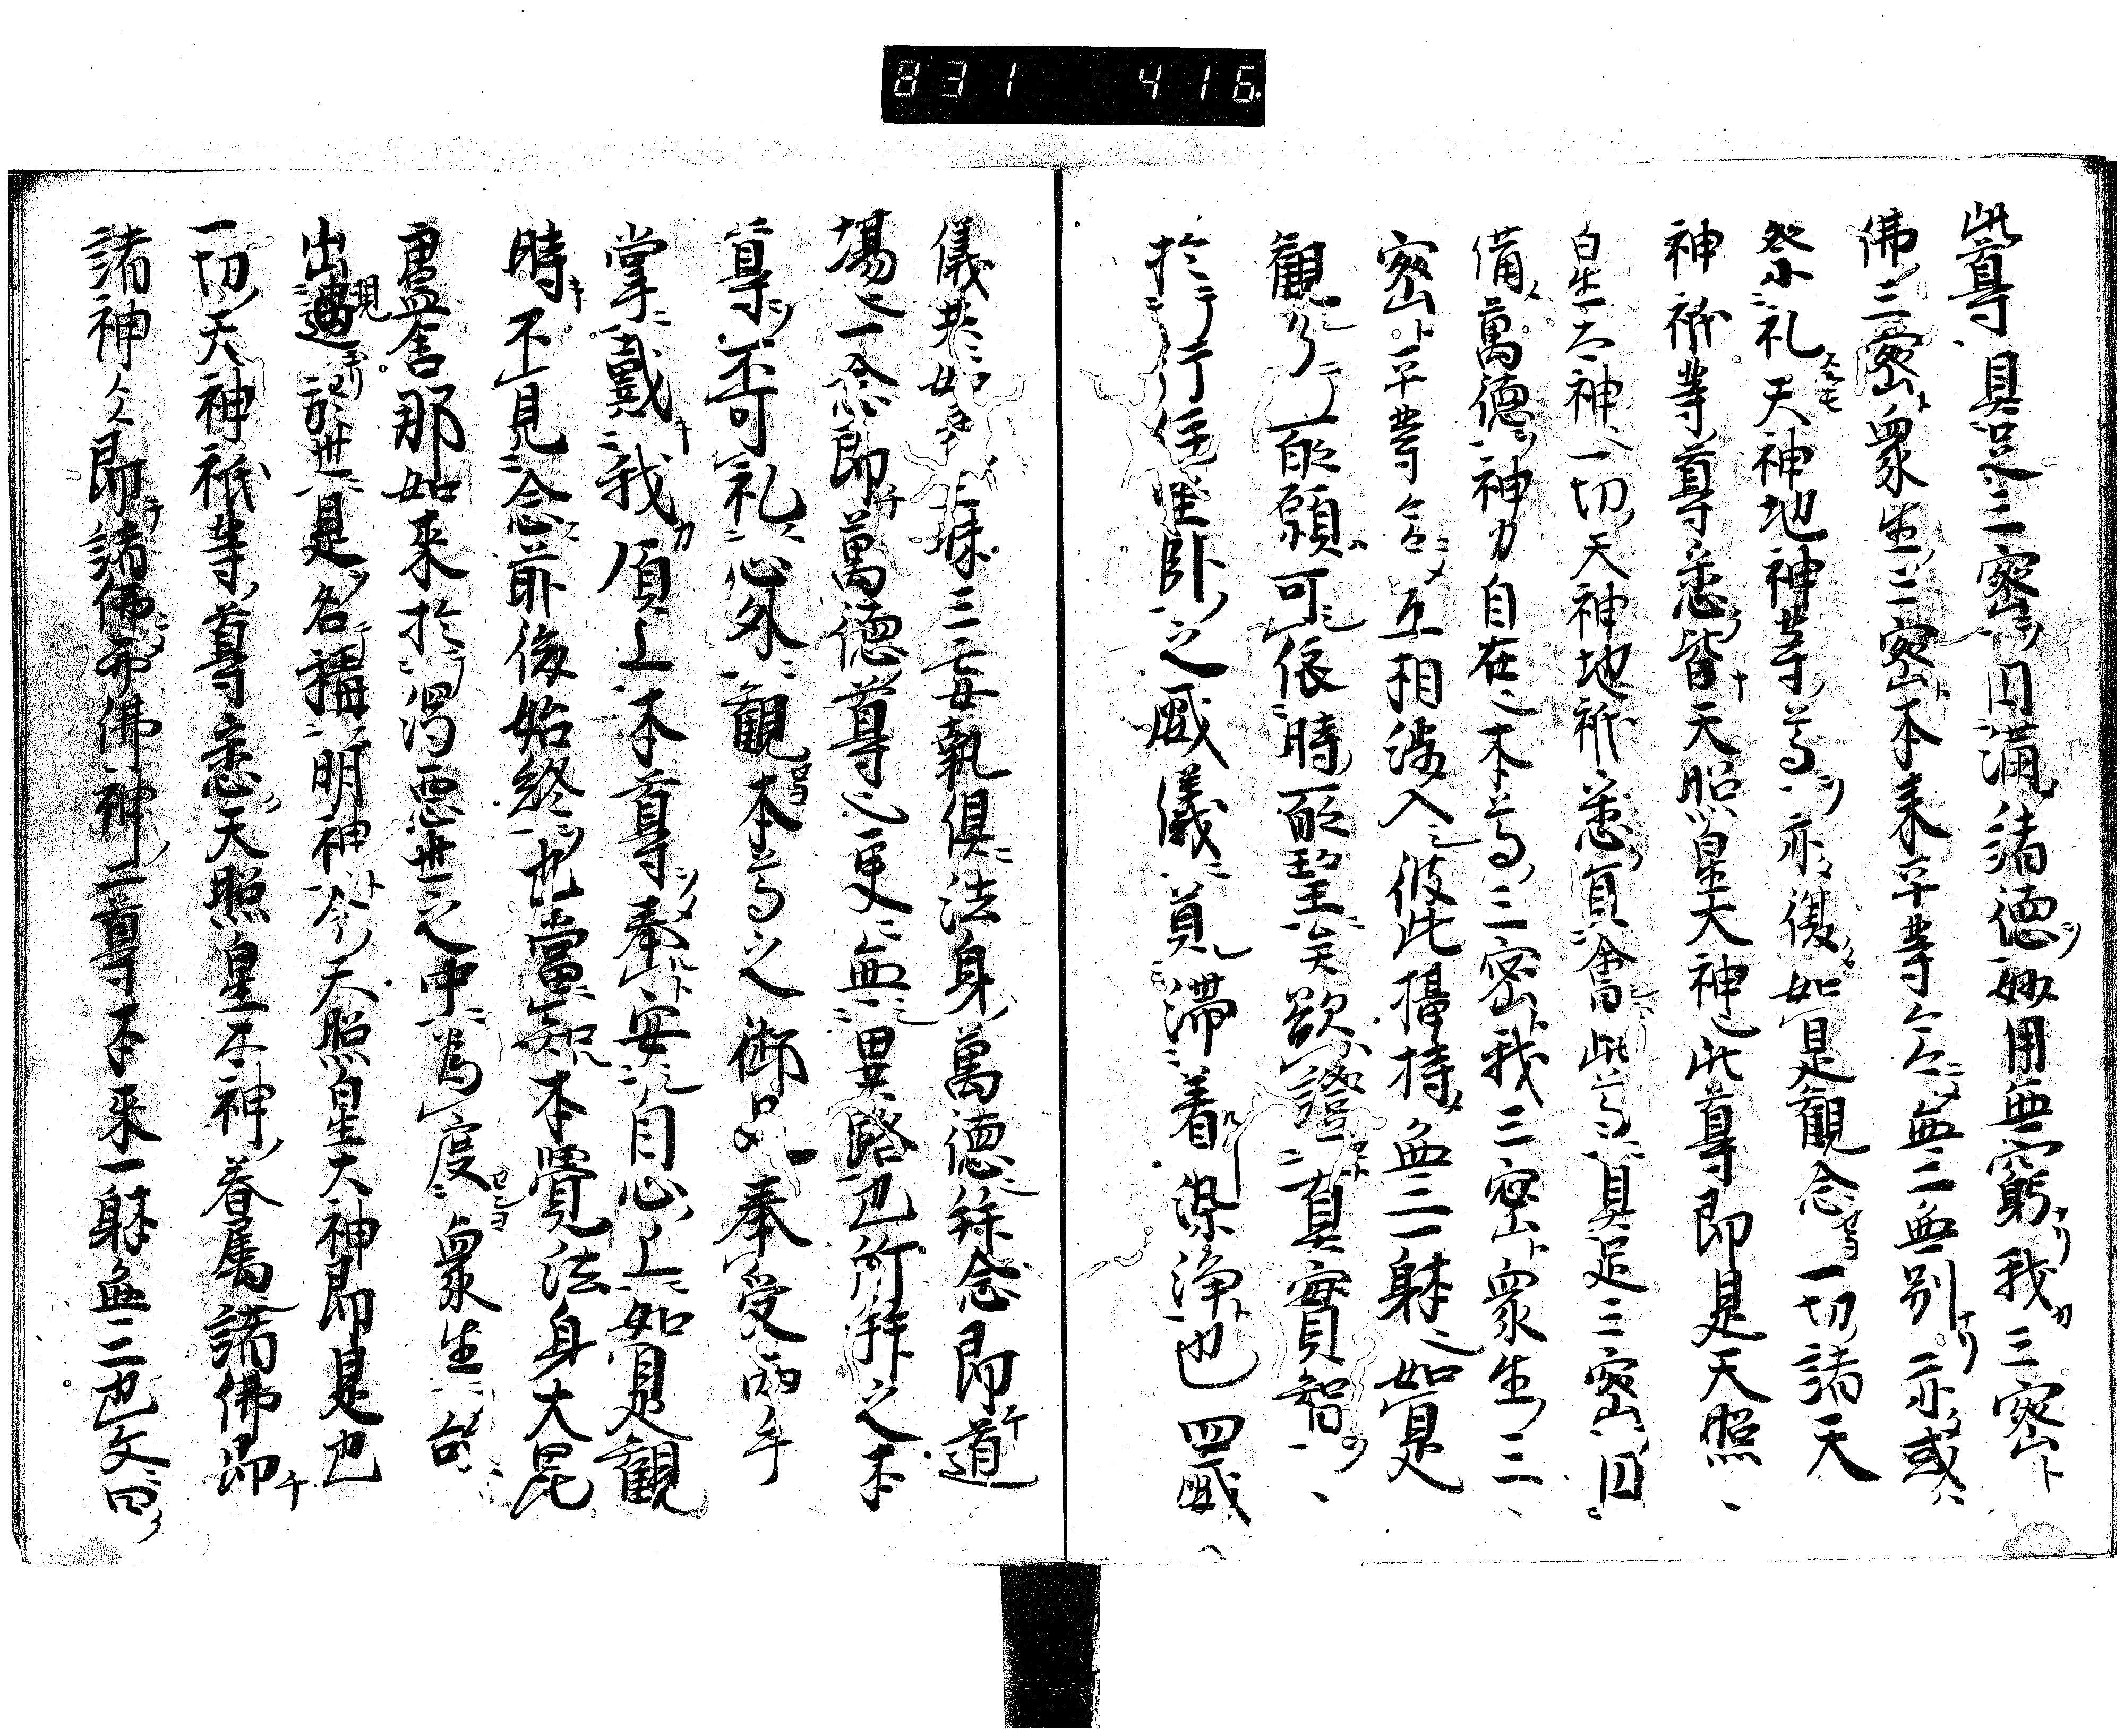 831 416
此尊具足三密円満諸徳妙用無窮我三密
佛三密衆生三密本来平等々々無二無別亦或
祭礼天神地神等尊亦復如是観念一切諸天
神祇等尊悉皆天照皇大神也此尊即是天照
皇大神一切天神地祇悉具會此尊具足三密円
備萬徳神力自在之本尊三密我三密衆生三
密平等々々互相渉入彼此攝持無二一躰之如是
観了一所願可依時所望矣欲證真實智
於行住坐卧之威儀莫滞着染浄也四威
儀共如在三妄執俱法身萬徳殊念即道
場之一念即萬徳尊之更無異路也所拝之本
尊不可礼心外観本尊之御只奉受両手
掌戴我頂上本尊奉安自心上如是観
時不見念前後始終也當知本覺法身大毘
盧舎那如来於濁悪世之中為度衆生
出現於世是名稱明神今天照皇大神即是也
一切天神祇等尊悉天照皇大神眷属諸佛即
諸神々即諸佛而佛神二尊本来一躰無二也文曰